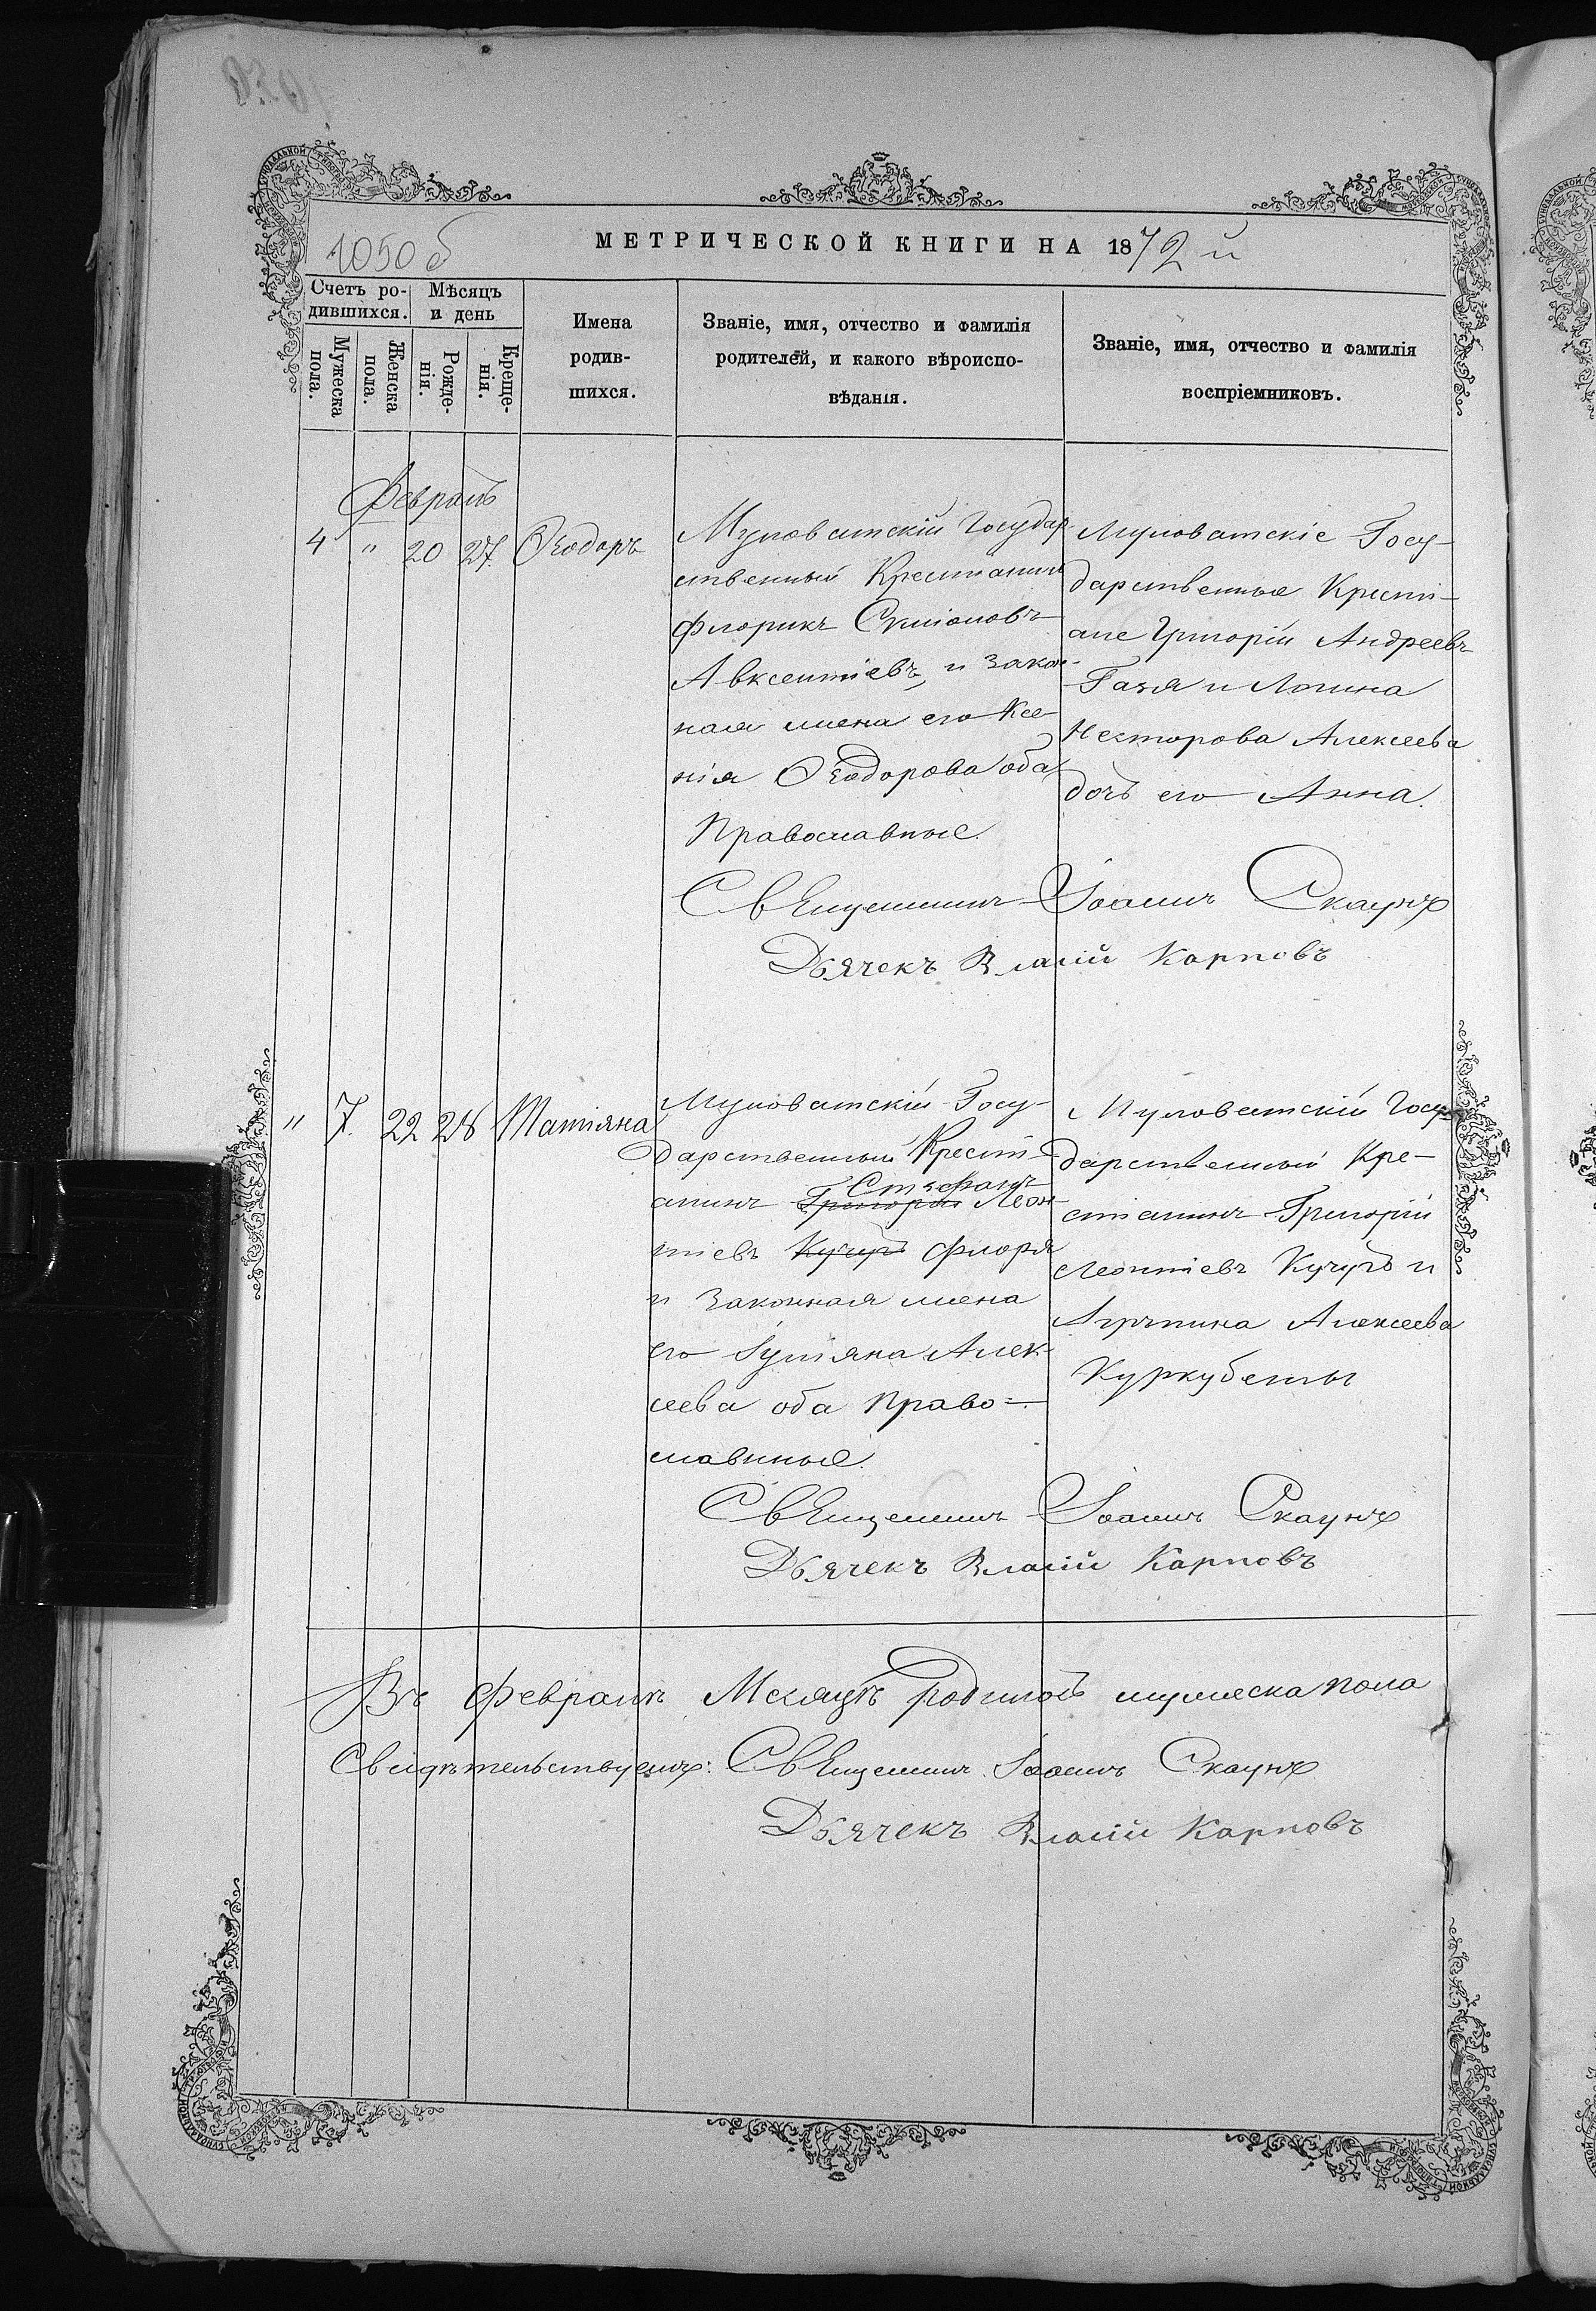 1050 б
МЕТРИЧЕСКОЙ КНИГИ НА 1872 й
Счетъ ро-
дившихся.
Мѣсяцъ
и день
Мужеска
пола.
Женска
пола.
Рожде-
нія.
Креще-
нія.
Имена
родив-
шихся.
Званіе, имя, отчество и фамилія
родителей, и какого вѣроиспо-
вѣданія.
Званіе, имя, отчество и фамилія
воспріемниковъ.
Февраль
4 " 20 27 Ѳеодоръ
Муловатскій Государ
ственный Крестіанинъ
Флорикъ Сумїоновъ
Авксентіевъ, и закон-
ная жена его Ксе-
нія Ѳеодорова оба
Православные.
Муловатскіе Госу-
дарственные Крести-
ане Григорій Андреевъ
Газя и Логина
Несторова Алексеева
дочь его Анна.
Священникъ Іоаннъ Скаунъ
Дьячекъ Власій Карповъ
" 7. 22 28 Татіяна
Муловатскій Госу-
дарственный Крест-
іанинъ Григорій Стефанъ Леон-
тіевъ Кучукъ Флоря
и Законная жена
его Іуліяна Алек-
сеева оба Право-
славные.
Муловатскій Госу-
дарственный Кре-
стіанинъ Григорій
Леонтіевъ Кучукъ и
Агрипина Алексеева
Куркубеты
Священникъ Іоаннъ Скаунъ
Дьячекъ Власій Карповъ
Въ Февралѣ Месяцѣ родилось мужеска пола
Свидѣтельствуемъ: Священникъ Іоаннъ Скаунъ
Дьячекъ Власій Карповъ